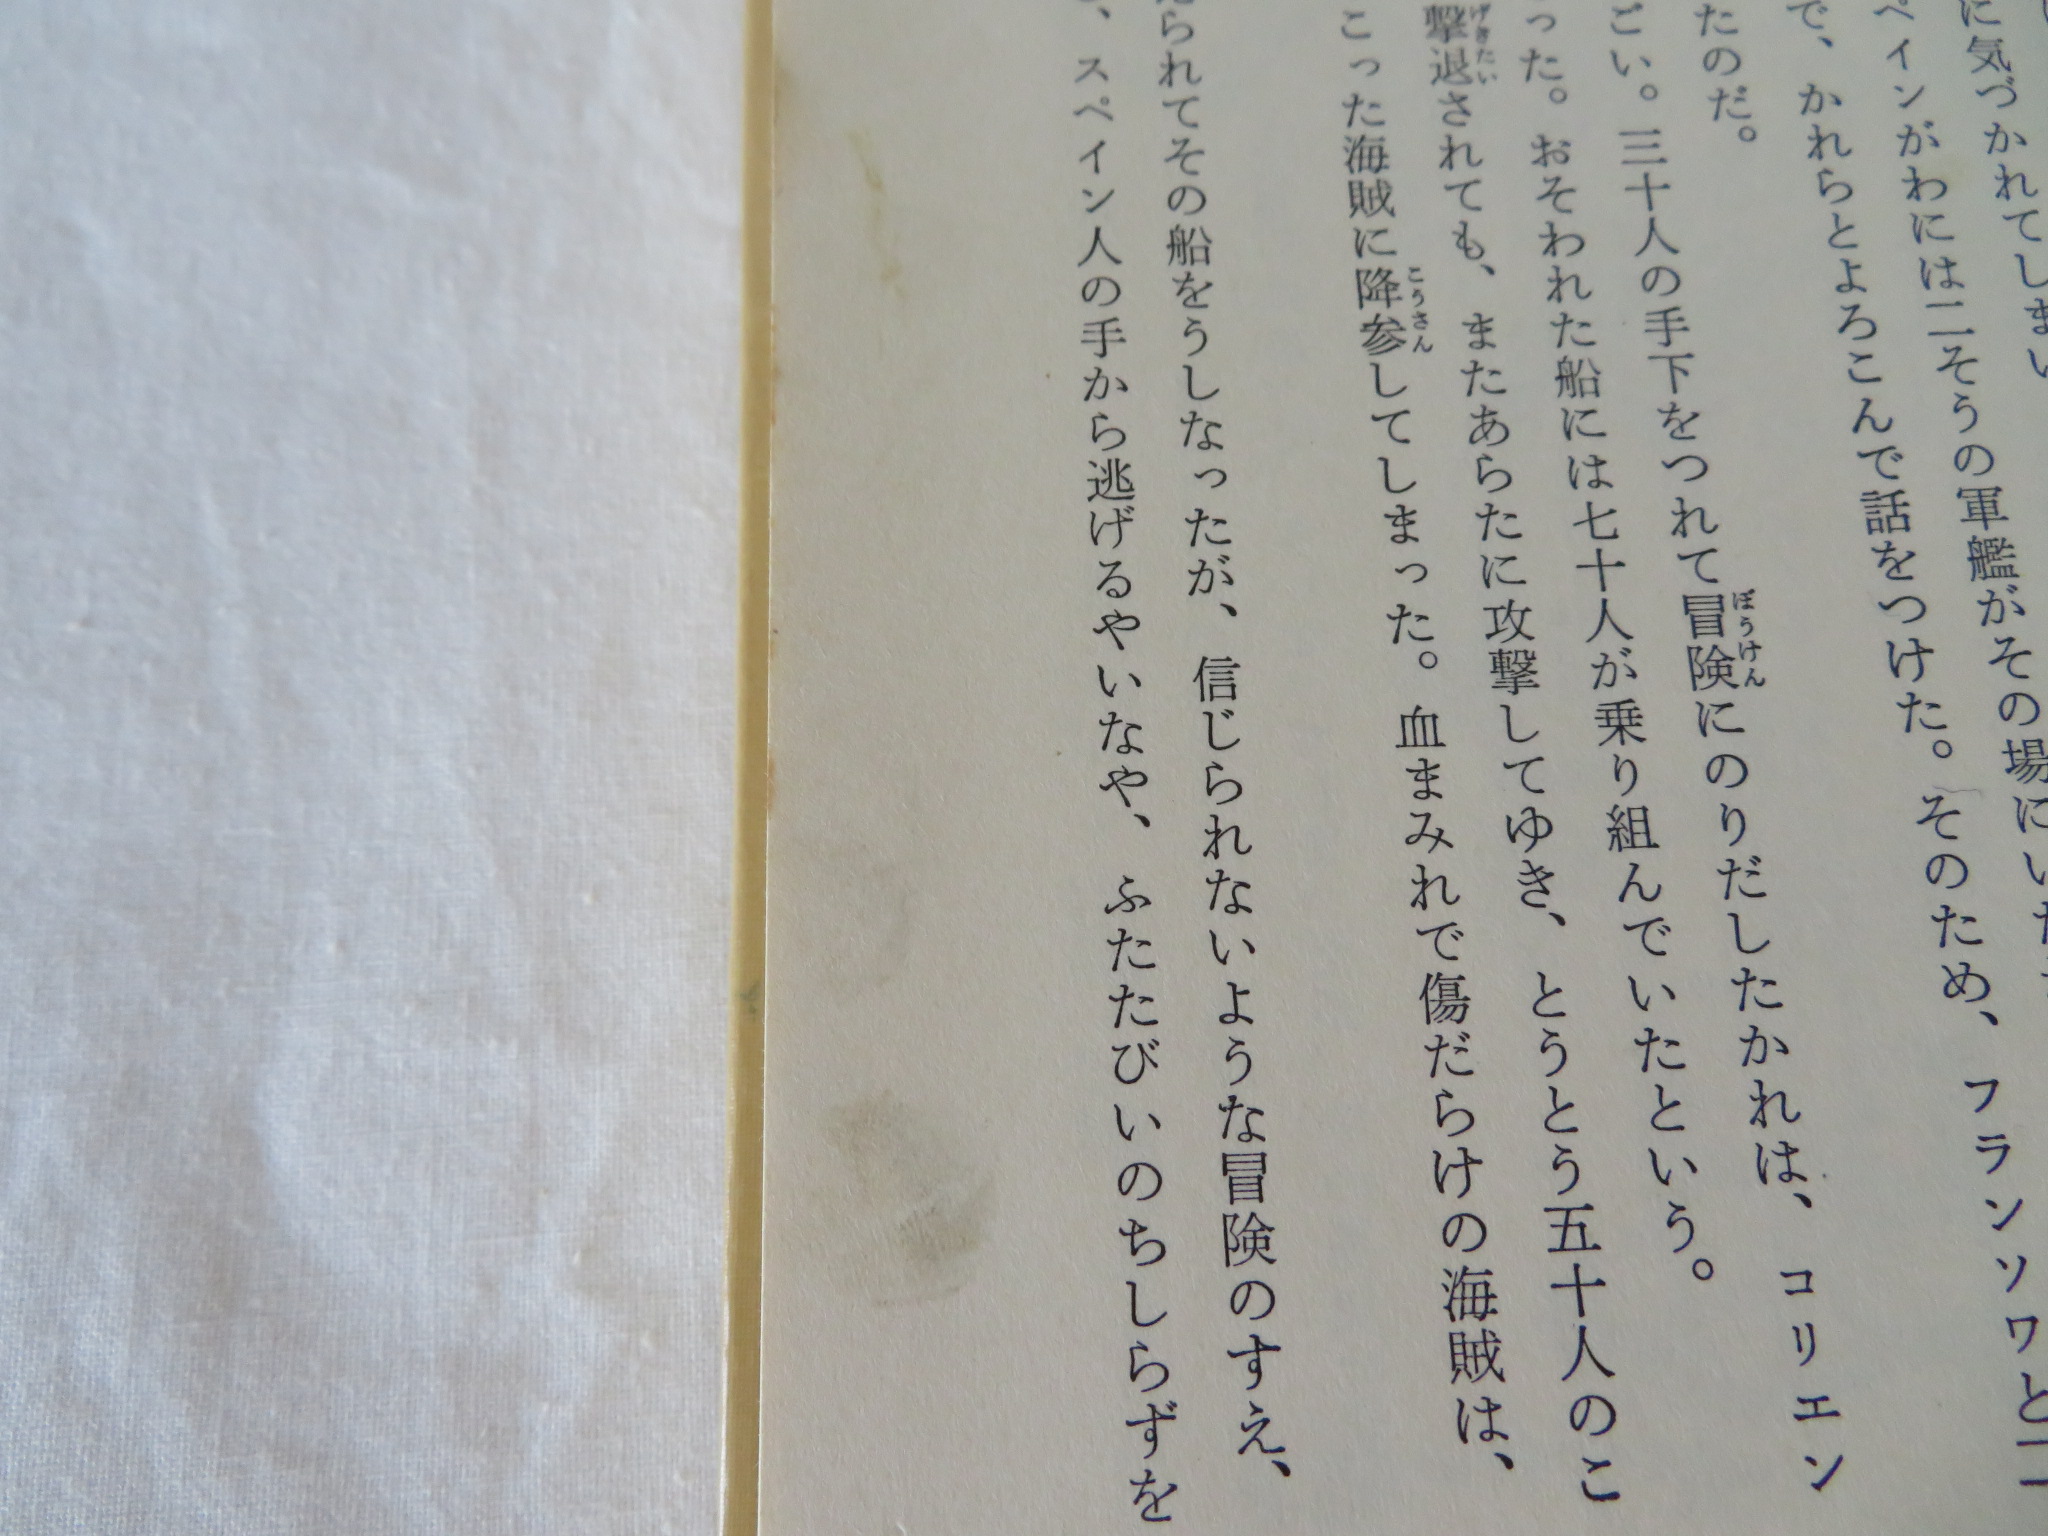 に気づかれてしまい
ペインがわには二そうの軍艦がその場にいた
で、かれらとよろこんで話をつけた。そのため、フランソワと二
たのだ。
ごい。三十人の手下をつれて冒険にのりだしたかれは、コリエン
った。おそわれた船には七十人が乗り組んでいたという。
撃退されても、またあらたに攻撃してゆき、とうとう五十人のこ
こった海賊に降参してしまった。血まみれで傷だらけの海賊は、
られてその船をうしなったが、信じられないような冒険のすえ、
、スペイン人の手から逃げるやいなや、ふたたびいのちしらずを